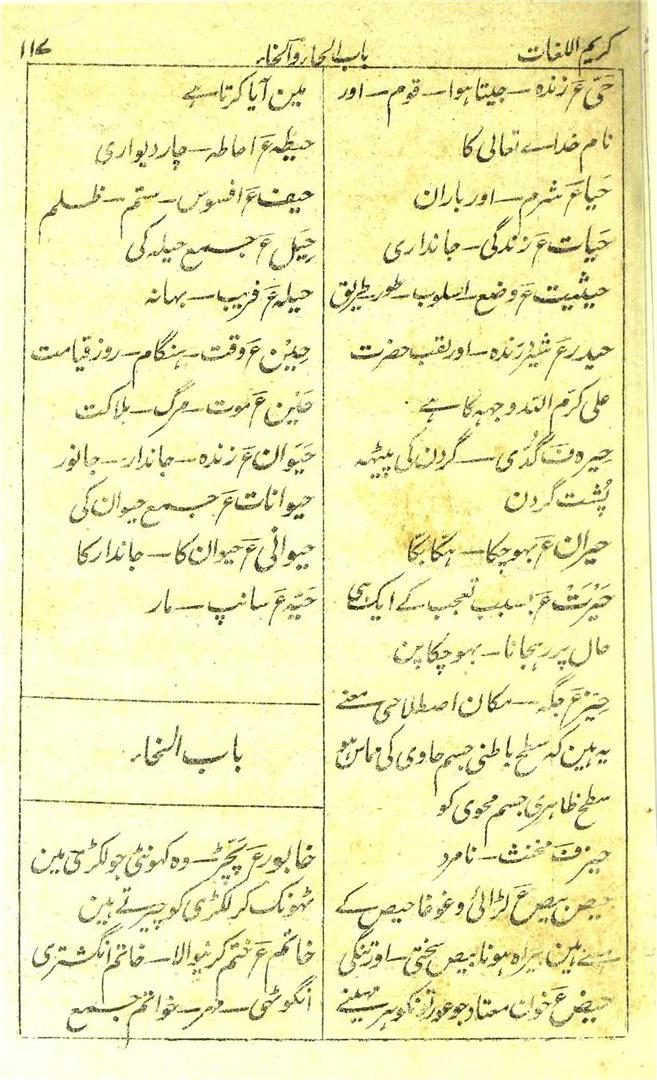 کریم اللغات
باب الحاء والخاء
۱۱۷
حَیّ عَ زندہ ۔ جیتا ہوا ۔ قوم ۔ اور
نام خداے تعالی کا
حَیا عَ شرم ۔ اور باران
حَیات عَ زندگی ۔ جانداری
حیثیت عَ وضع ۔ اسلوب ۔ طور ۔ طریق
حیدر عَ شیر درندہ ۔ اور لقب حضرت
علی کرم اللہ وجہہ کا ہے
حِیرہ فَ گُدّی ۔ گردن کی پیٹھہ
پُشت گردن
حیران عَ بہوچکا ۔ ہکّا بکّا
حَیْرَتْ عَ بسبب تعجب کے ایک ہی
حال پر رہجانا ۔ بہوچکاپن
حیّز عَ جگہ ۔ مکان اصطلاحی معنے
یہ ہین کہ سطح باطنی جسم حاوی کی مماس ہو
سطح ظاہری جسم محوی کو
حیز فَ مخنث ۔ نامرد
حیص بیص عَ لڑائی و غوغا حیص کے
معنے ہین بیراہ ہونا بیص سختی ۔ اور تنگی
حیض عَ خون معتاد جو عورتونکو ہر مہینے
مین آیا کرتا ہے
حیطہ عَ احاطہ ۔ چار دیواری
حیف عَ افسوس ۔ ستم ۔ ظلم
حِیَل عَ جمع حیلہ کی
حیلہ عَ فریب ۔ بہانہ
حِیْن عَ وقت ۔ ہنگام ۔ روز قیامت
حَیْن عَ موت ۔ مرگ ۔ ہلاکت
حَیَوان عَ زندہ ۔ جاندار ۔ جانور
حیوانات عَ جمع حیوان کی
حیوانی عَ حیوان کا ۔ جاندار کا
حَیّہ عَ سانپ ۔ مار
باب الخاء
خابور عَ پچّڑ ۔ وہ کہونٹی جو لکڑی مین
ٹھونک کر لکڑی کو چیرتے ہین
خاتم عَ ختم کرنیوالا ۔ خاتَم انگشتری
انگوٹھی ۔ مہر ۔ خواتم جمع